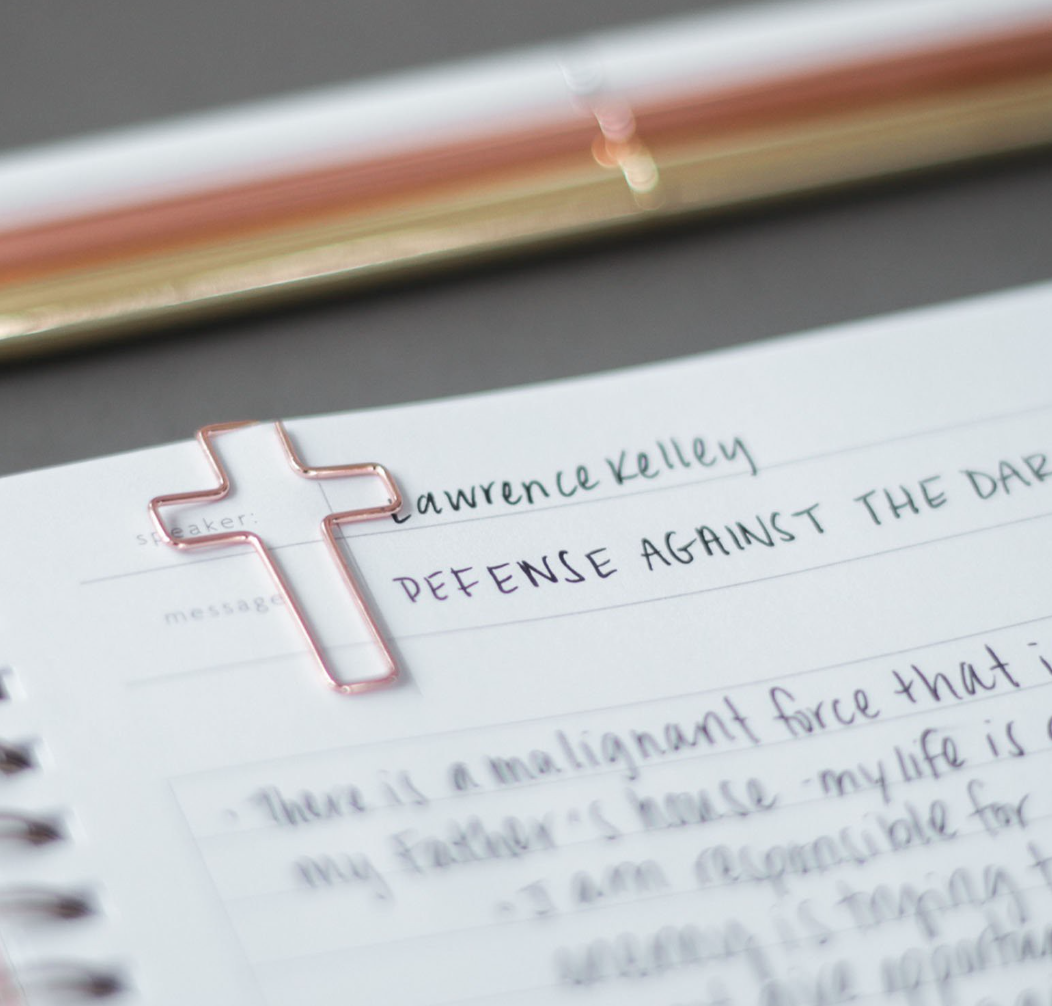 speaker: Lawrence Kelley
message DEFENSE AGAINST THE DAR
There is a malignant force that i
my Father's house - my life is
I am responsible for
enemy is trying t
give opportun